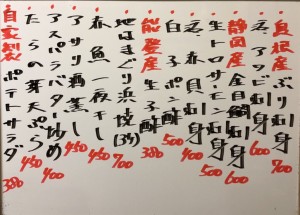 島根産 活アワビ刺身 700
活ツブ刺身 600
静岡産 金目鯛刺身 600
生トロサーモン刺身 450
赤貝刺身 500
白子ポン酢 400
能登産 生子酢 380
地はまぐり浜焼(3ケ) 700
赤魚一夜干し 450
アサリ酒蒸し 400
アスパラバター炒め 450
たらの芽天ぷら 450
自家製 ポテトサラダ 380